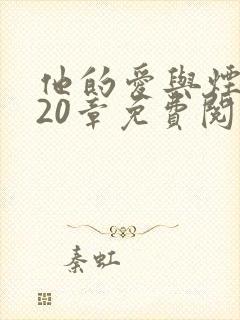 他的愛與煙
20章免費閱
秦虹